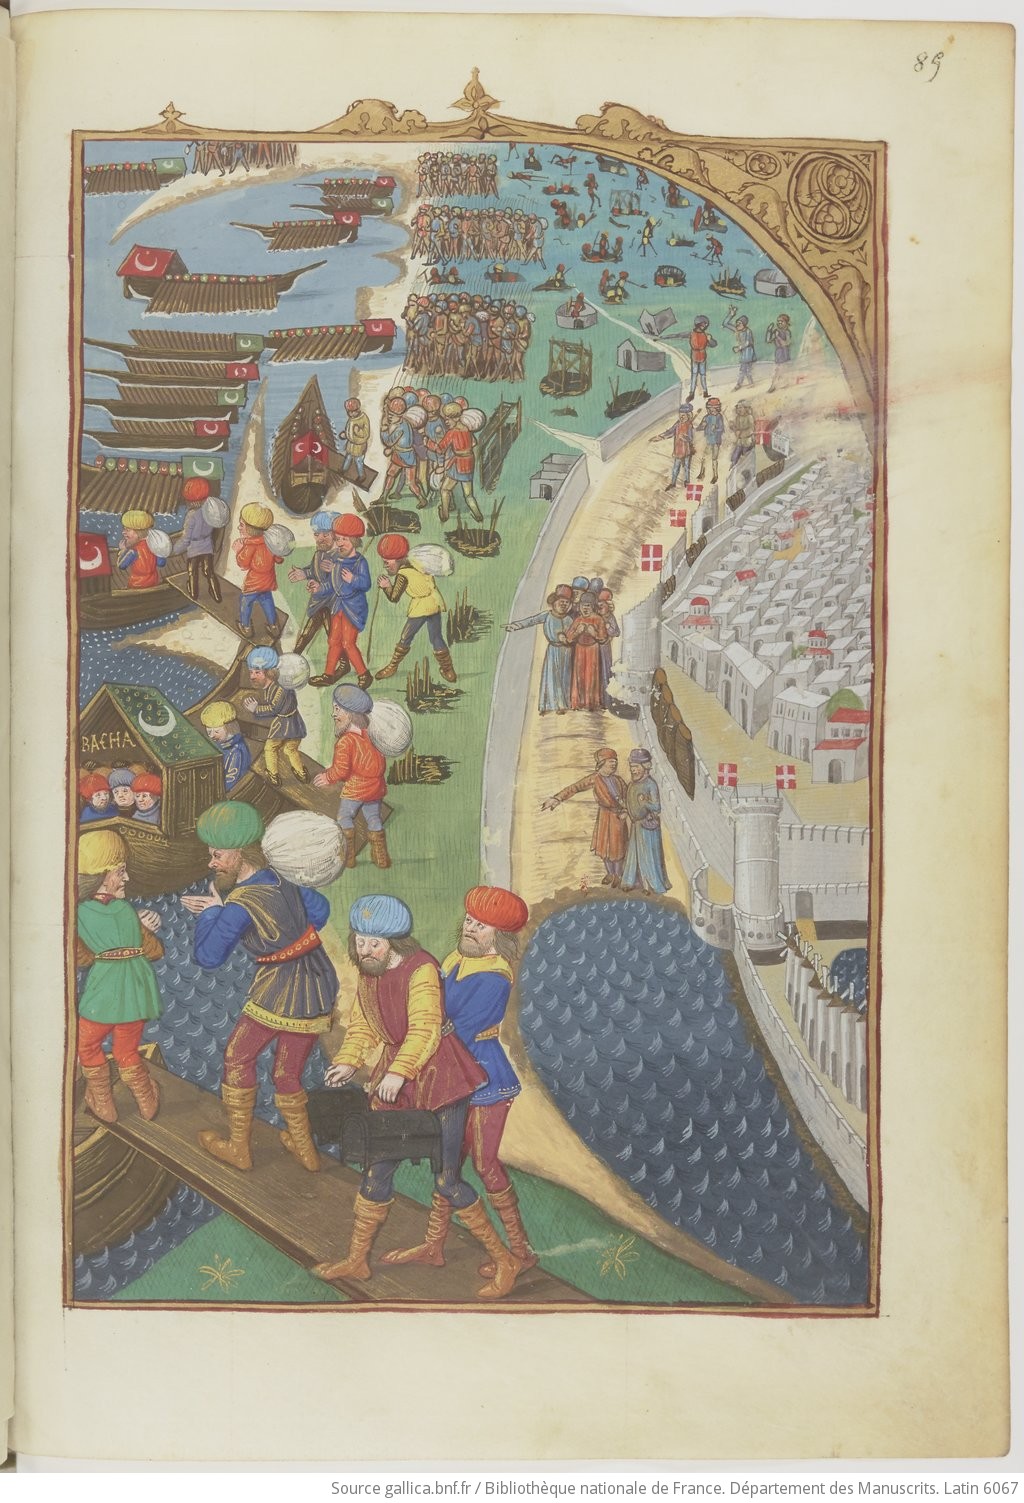 85
BACHA
Source gallica.bnf.fr / Bibliothèque nationale de France. Département des Manuscrits. Latin 6067